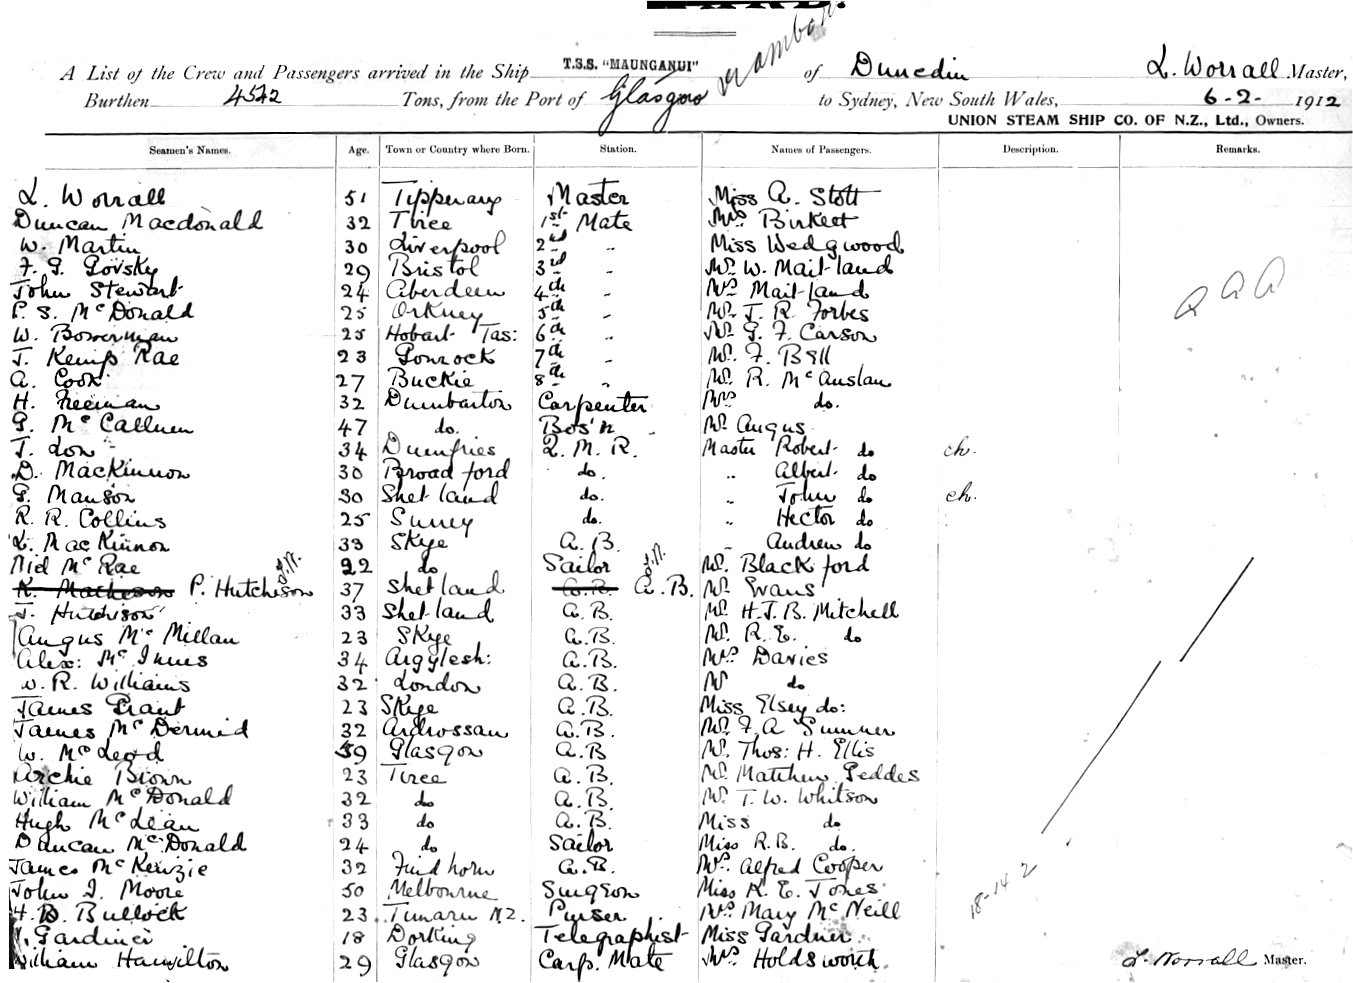 A List of the Crew and Passengers arrived in the Ship T.S.S. "MAUNGANUI" of Dunedin L. Worrall Master,
Burthen 4542 Tons, from the Port of Glasgow to Sydney, New South Wales, 6-2- 1912
UNION STEAM SHIP CO. OF N.Z., Ltd., Owners.
Seamen's Names. Age. Town or Country where Born. Station. Names of Passengers. Description. Remarks.
L. Worrall 51 Tipperary Master Miss A. Stott
Duncan Macdonald 32 Tiree 1st Mate Mrs Birkett
W. Martin 30 Liverpool 2nd " Miss Wedgwood
F. G. Govsky 29 Bristol 3rd " Mr. W. Maitland
John Stewart 24 Aberdeen 4th " Mrs Maitland
P. S. McDonald 25 Orkney 5th " Mr. J. R. Forbes
W. Bowerman 25 Hobart Tas: 6th " Mr. G. F. Carson
J. Kemp Rae 23 Gourock 7th " Mr. F. Bell
A. Cook 27 Buckie 8th " Mr. R. McAuslan
H. Freeman 32 Dumbarton Carpenter Mrs do.
G. McCallum 47 do. Bos'n Mr. Angus
J. Low 34 Dumfries Q. M. R. Master Robert do ch.
D. MacKinnon 30 Broadford do. " Albert do
G. Manson 30 Shetland do. " John do ch.
R. R. Collins 25 Surrey do. " Hector do
L. MacKinnon 33 Skye A.B. " Andrew do
Nid McRae 22 do Sailor Mr. Blackford
K. Matheson P. Hutchison 37 Shetland A.B. A.B. Mr. Evans
J. Hutchison 33 Shetland A.B. Mr. H.J.B. Mitchell
Angus McMillan 23 Skye A.B. Mr. R. E. do
Alex: McInnes 34 Argylesh: A.B. Mrs Davies
W. R. Williams 32 London A.B. do
James Grant 23 Skye A.B. Miss Elsey do:
James McDermid 32 Ardrossan A.B. Mr. F. A Sumner
W. McLeod 59 Glasgow A.B Mr. Thos: H. Ellis
Archie Brown 23 Tiree A.B. Mr. Matthew Geddes
William McDonald 32 do A.B. Mr. T. W. Whitson
Hugh McLean 33 do A.B. Miss do
Duncan McDonald 24 do Sailor Miss R.B. do.
James McKenzie 32 Findhorn A.B. Mr. Alfred Cooper
John I. Moore 50 Melbourne Surgeon Miss K. E. Jones
H. B. Bullock 23 Timaru N.Z. Purser Mrs Mary McNeill
Gardiner 18 Dorking Telegraphist Miss Gardner
William Hamilton 29 Glasgow Carp. Mate Mrs Holdsworth
18-14 2
L. Worrall Master.